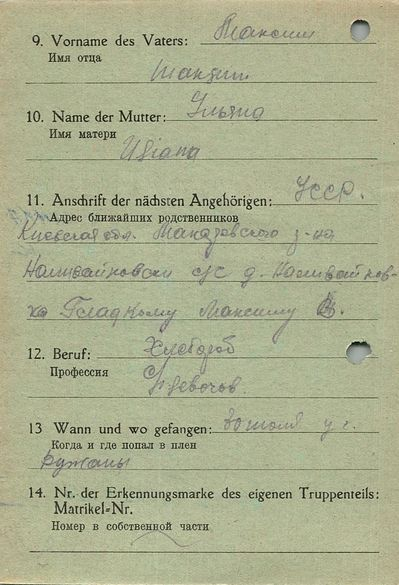 9. Vorname des Vaters: Максим
Имя отца
Maxim
10. Name der Mutter: Ульяна
Имя матери
Uljana
11. Anschrift der nächsten Angehörigen: УССР.
Адрес ближайших родственников
Киевская обл. р-на
с/с д.
Гладкому Максиму
12. Beruf: Хлебороб
Профессия
13 Wann und wo gefangen:
Когда и где попал в плен
Ружаны
14. Nr. der Erkennungsmarke des eigenen Truppenteils:
Matrikel-Nr.
Номер в собственной части